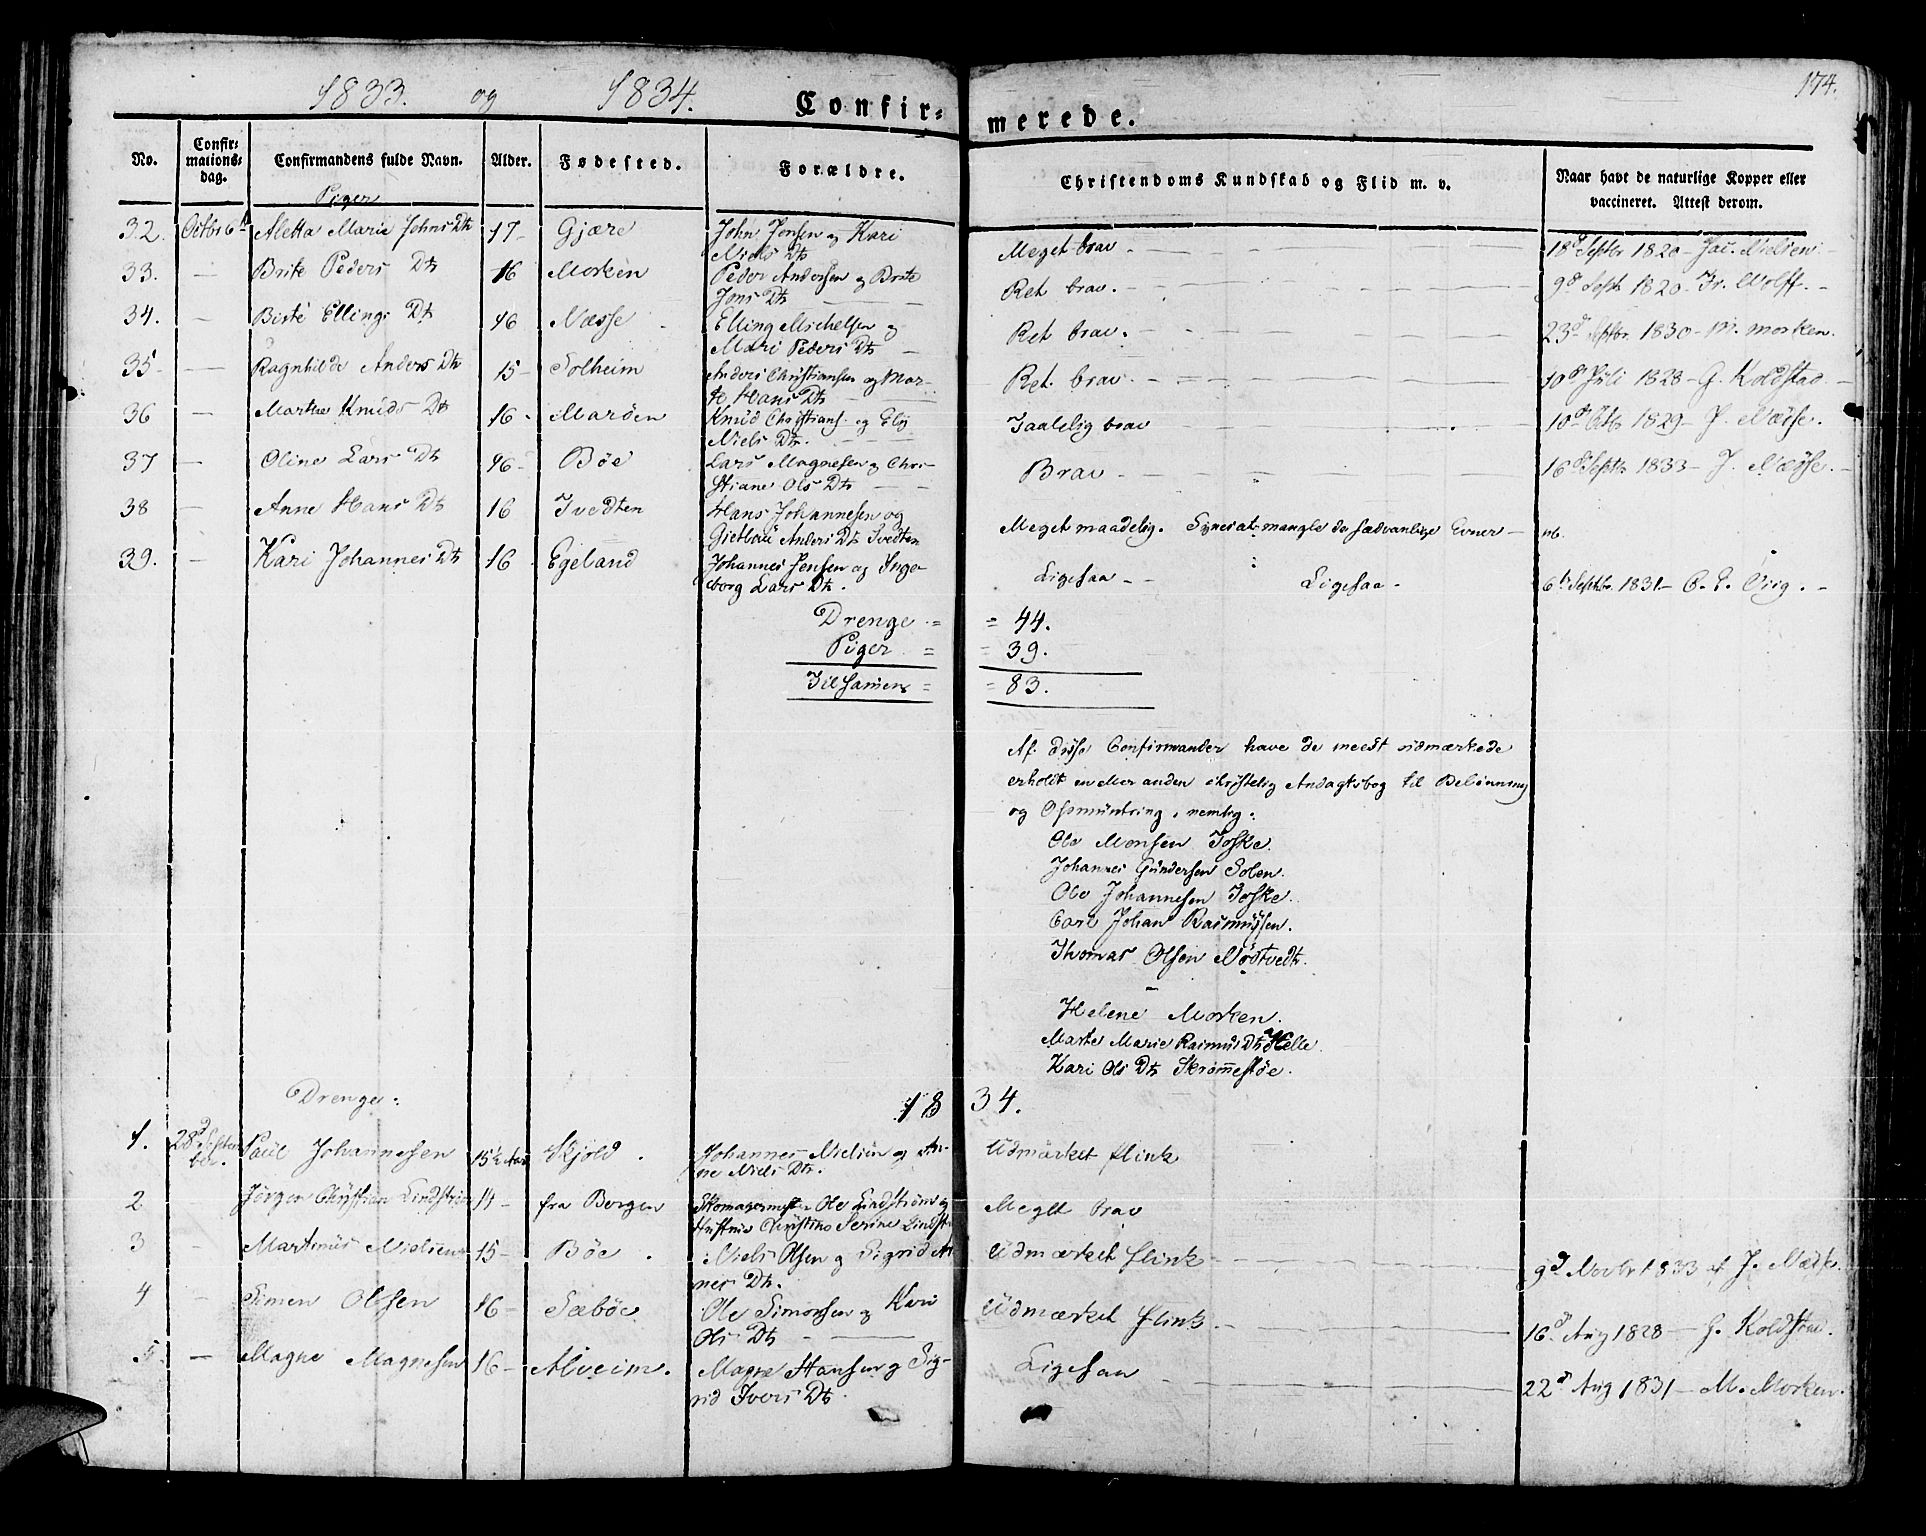 1833. og 1834. Confirmerede. 174.
No. Confirmationsdag. Confirmandens fulde Navn. Alder. Fødested. Forældre. Christendoms Kundskab og Flid m. v. Naar havt de naturlige Kopper eller vaccineret. Attest derom.
Piger
32. Octbr 6te Aletta Marie Johns Dtr 17 - Gjære John Jensen og Kari Meget brav - 18d Septbr 1820 - Jac. Nielsen
Niels Dtr
33. - Brite Peders Dtr 16 Morken Peder Andersen og Brite Ret brav. - 9d Septb 1820 - Fr. Wolff. -
Jons Dtr
34. - Birte Ellings Dtr 16 Næsse Elling Michelsen og Ret brav. - 23d Septbr. 1830 - M. Morken.
Mari Peders Dtr
35 - Ragnhilde Anders Dtr 15 - Solheim Anders Christiansen og Mar- Ret. brav - 10d Juli 1828 - G. Koldstad -
te Hans Dtr
36 - Marthe Knuds Dtr 16 - Marøen Knud Christians. og Elij Taalelig brav 10d Octb 1829 - J. Næsse.
Niels Dtr.
37 - Oline Lars Dtr 16 - Bøe Lars Magnesen og Chri- Brav - 16d Septbr. 1833 - J. Næsse. -
stiane Ols Dtr
38 - Anne Hans Dtr 16 Tvedten Hans Johannesen og Meget maadelig. Synes at mangle de sædvanlige Evner - nb.
Anders Dtr Tvedten
39. - Kari Johannes Dtr 16 Egeland Johannes Jensen og Inge- Ligesaa - - Ligesaa - 6te Septbr. 1831 -
borg Lars Dtr.
Drenge = = 44.
Piger = = 39.
Tilsamen = = 83.
Af disse Confirmander have de meest udmærkede
erholdt en eller anden christelig Andagtsbog til Belønning
og Opmuntring, nemlig:
Ole Monsen Toske.
Johannes Gundersen Solen.
Ole Johannesen Toske.
Carl Johan Rasmussen.
Thomas Olsen Nøstvedt.
Helene Morken.
Marte Marie Rasmus Dtr Helle.
Kari Ols Dtr Skrømestøe.
Drenge: 1834.
1. 28d Septem- Paul Johannesen 15½ Aar Skjold. Johannes Nielsen og An- Udmærket flink
ber. ne Niels Dtr.
2 Jørgen Christian Lindstrøm 14 - fra Bergen Skomagermester Ole Lindstrøm og Meget brav
Hustrue Christine Serine Lindst
3 - Martinus Nielsen 15 - Bøe. Niels Olsen og Sigrid An Udmærket flink - 9d Novbr 1833 af J. Næsse.
ners Dtr.
4 - Simen Olsen 16 - Sæbøe Ole Simonsen og Kari Udmærket flink. - 16d Aug 1828 - G. Koldstad.
Ols Dtr -
5. - Magne Magnesen 16 - Alveim. Magne Hansen og Sig- Ligesaa - 22d Aug 1831 - M. Morken.
rid Ivers Dtr.